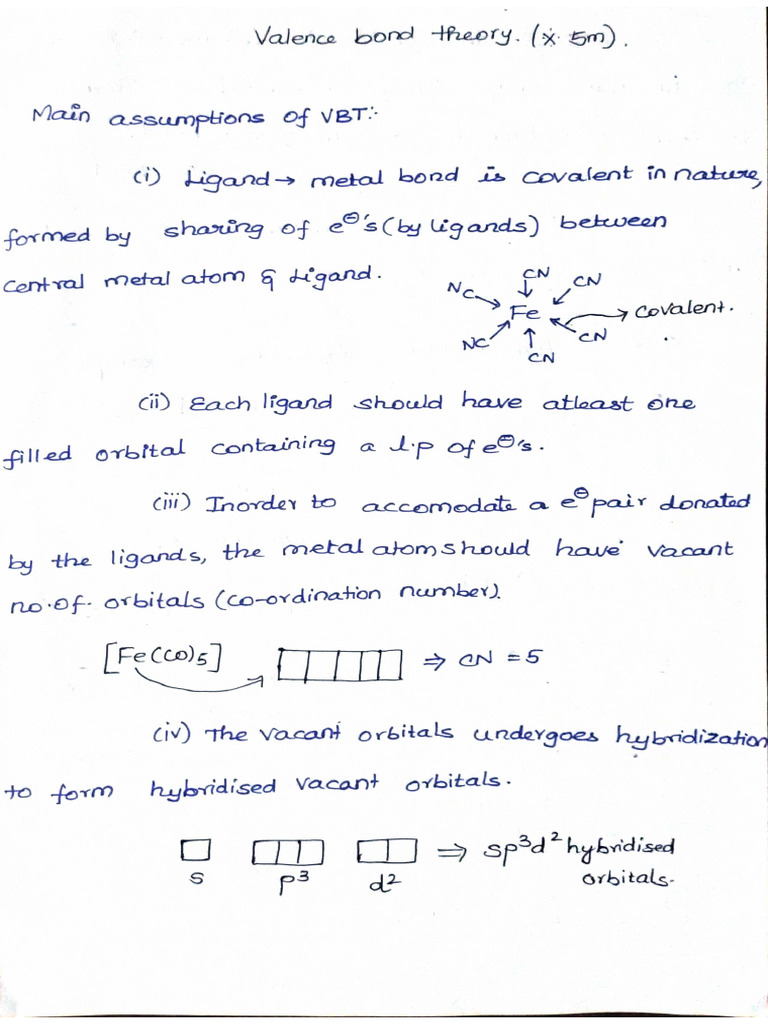 Valence bond theory. (x. 5m).
Main assumptions of VBT:-
(i) Ligand → metal bond is covalent in nature,
formed by sharing of e⊖'s (by ligands) between
central metal atom & Ligand.
CN
NC CN
Fe → Covalent.
NC CN
CN
(ii) Each ligand should have atleast one
filled orbital containing a l.p of e⊖'s.
(iii) Inorder to accomodate a e⊖ pair donated
by the ligands, the metal atom should have vacant
no. of. orbitals (co-ordination number).
[Fe(CO)5] ⇒ CN = 5
(iv) The vacant orbitals undergoes hybridization
to form hybridised vacant orbitals.
⇒ sp³d² hybridised
s p³ d² orbitals.